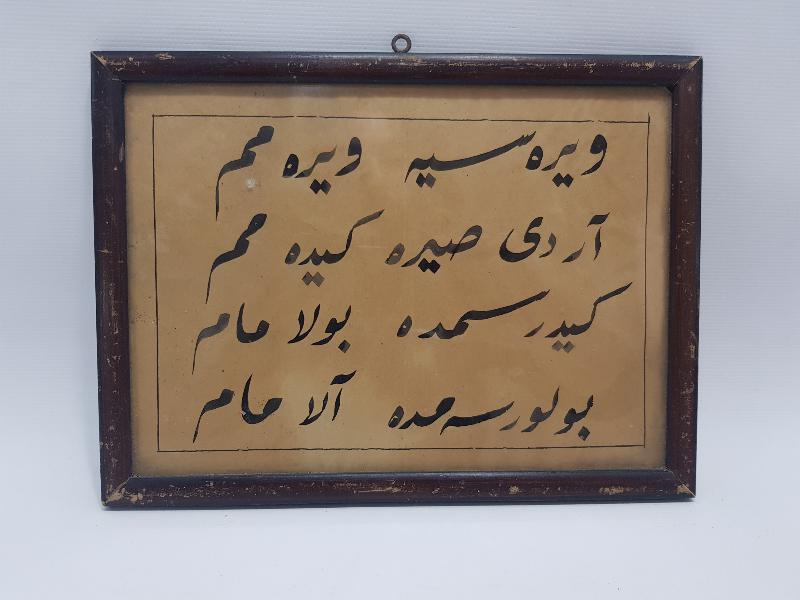 ویره سیه ویره ممم
آردی صیره کیده ممم
کیدرسمده بولا مام
بولورسه مده آلا مام